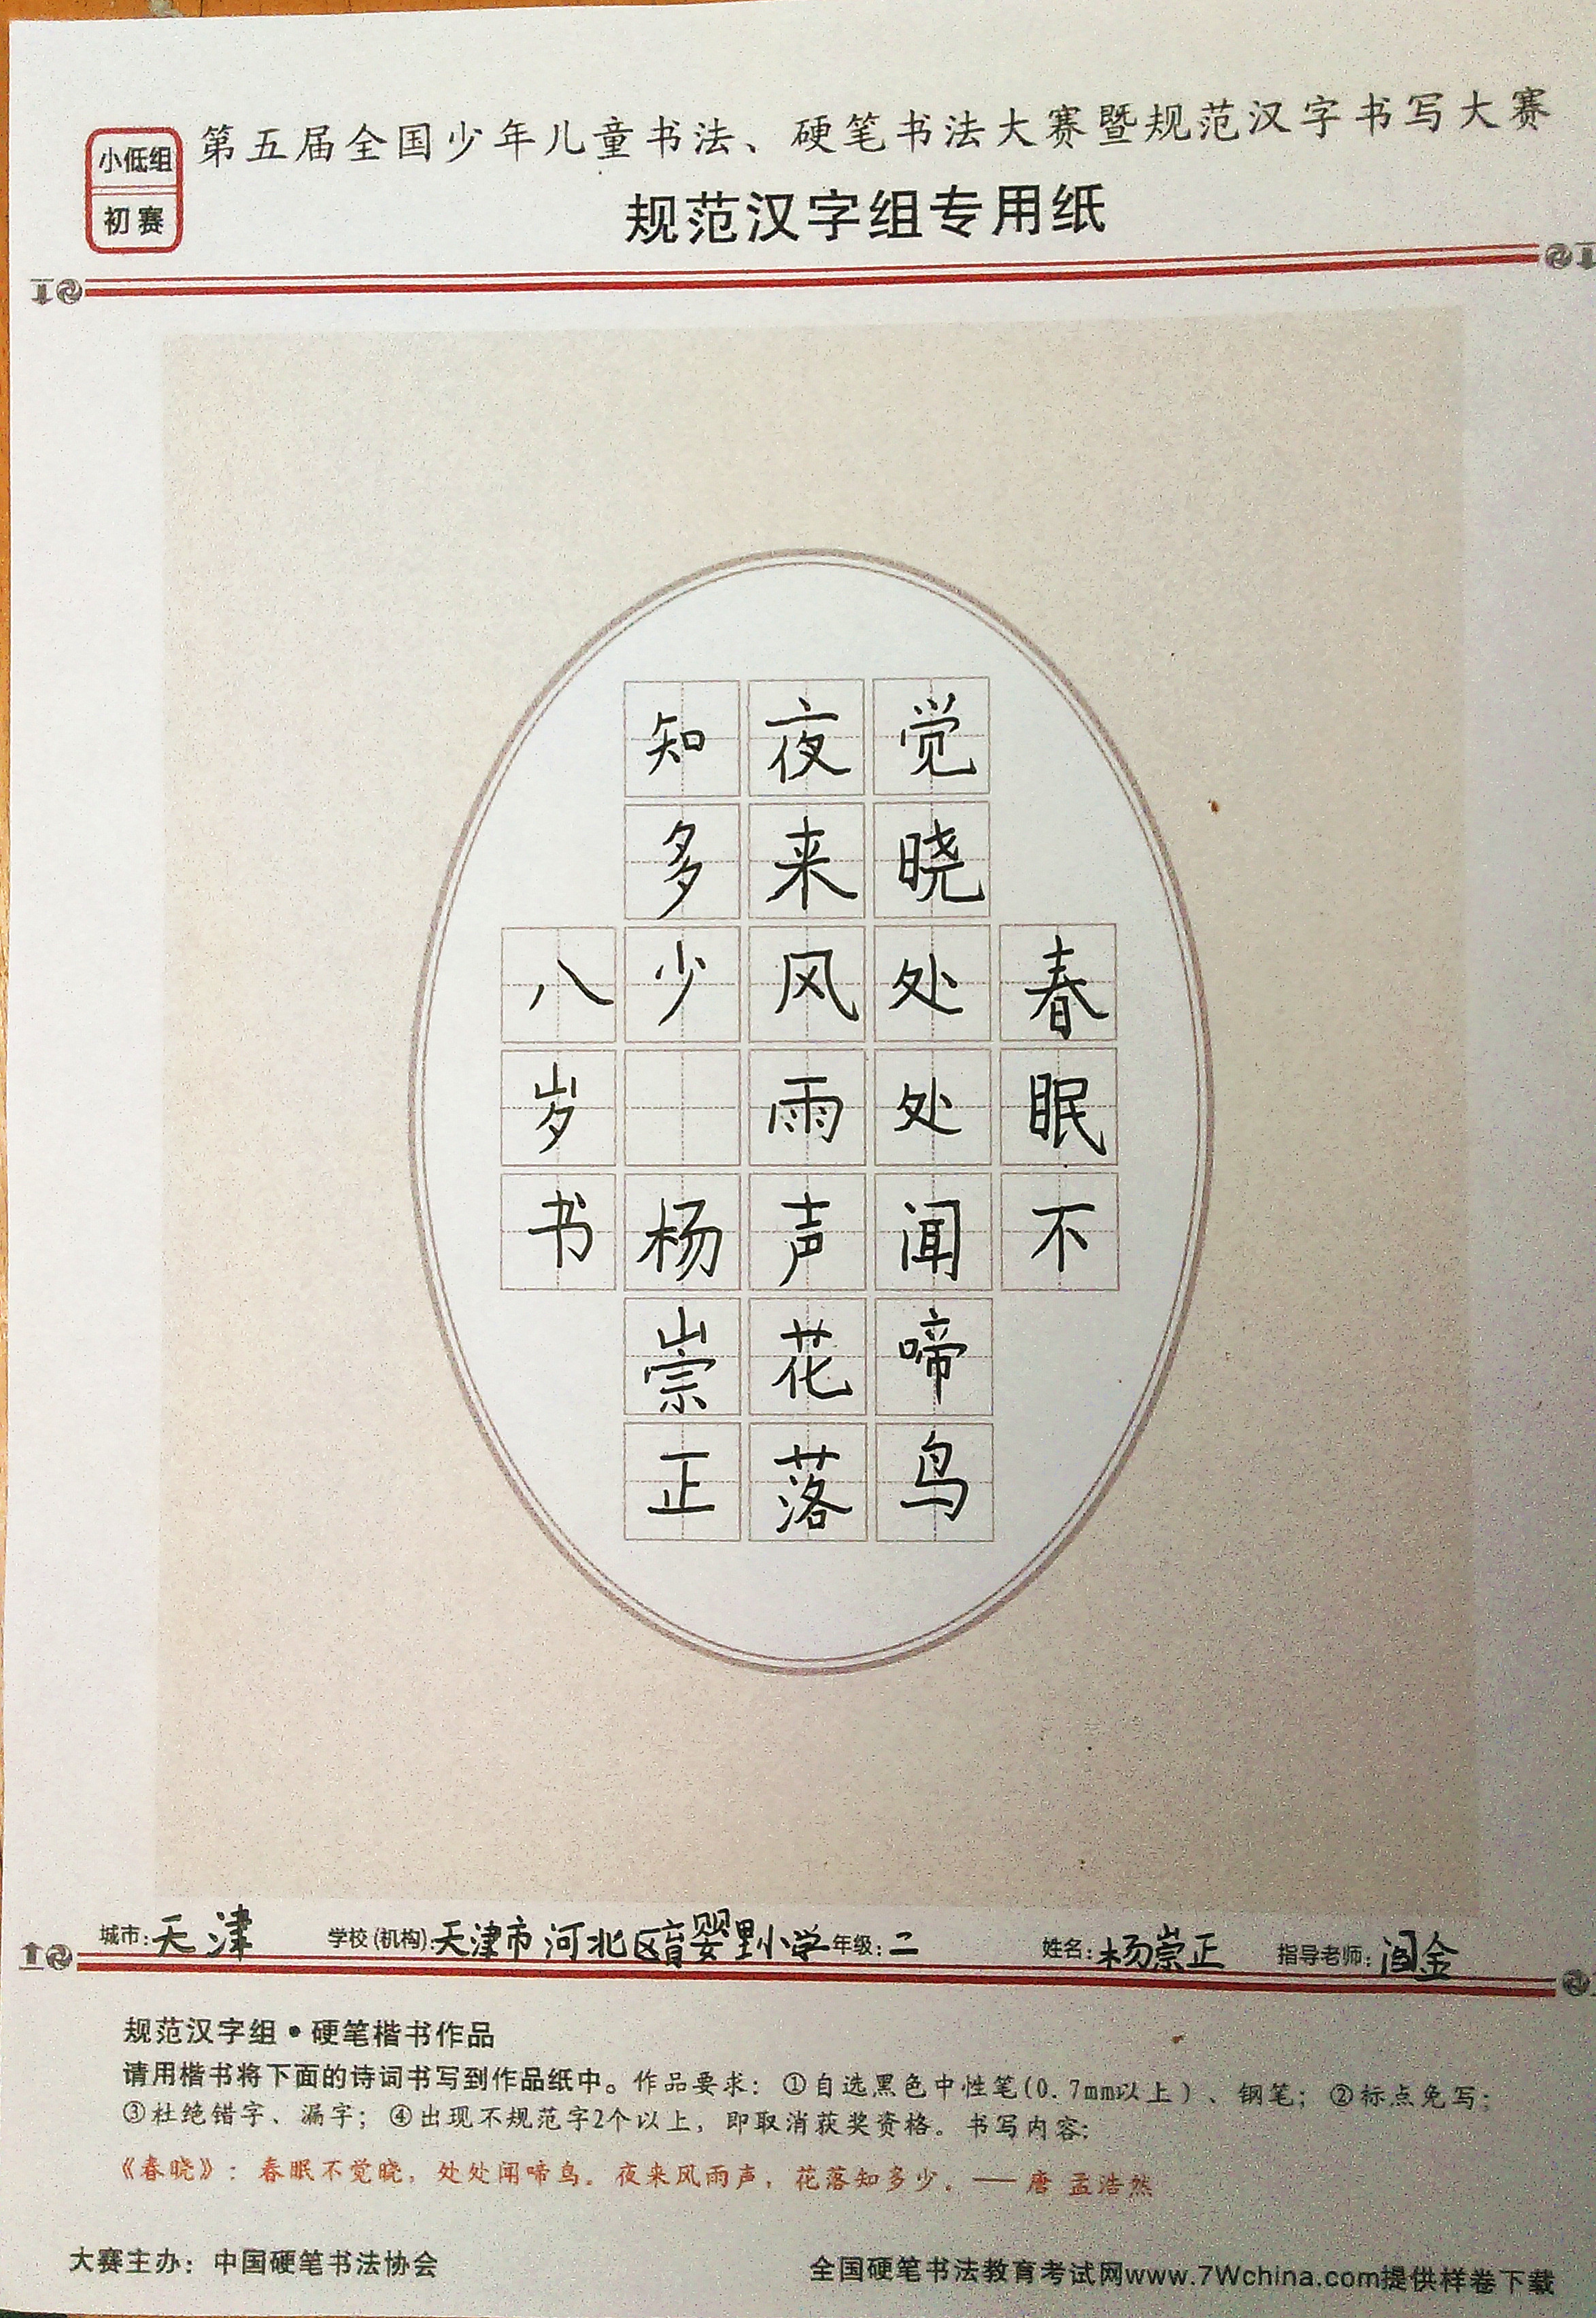 小低组
初赛
第五届全国少年儿童书法、硬笔书法大赛暨规范汉字书写大赛
规范汉字组专用纸
春眠不
觉晓处处闻啼鸟
夜来风雨声花落
知多少 杨崇正
八岁书
城市:天津 学校(机构):天津市河北区育婴里小学 年级:二 姓名:杨崇正 指导老师:阎金
规范汉字组•硬笔楷书作品
请用楷书将下面的诗词书写到作品纸中。作品要求:①自选黑色中性笔(0.7mm以上)、钢笔;②标点免写;
③杜绝错字、漏字;④出现不规范字2个以上,即取消获奖资格。书写内容:
《春晓》:春眠不觉晓,处处闻啼鸟。夜来风雨声,花落知多少。——唐 孟浩然
大赛主办:中国硬笔书法协会 全国硬笔书法教育考试网www.7Wchina.com提供样卷下载